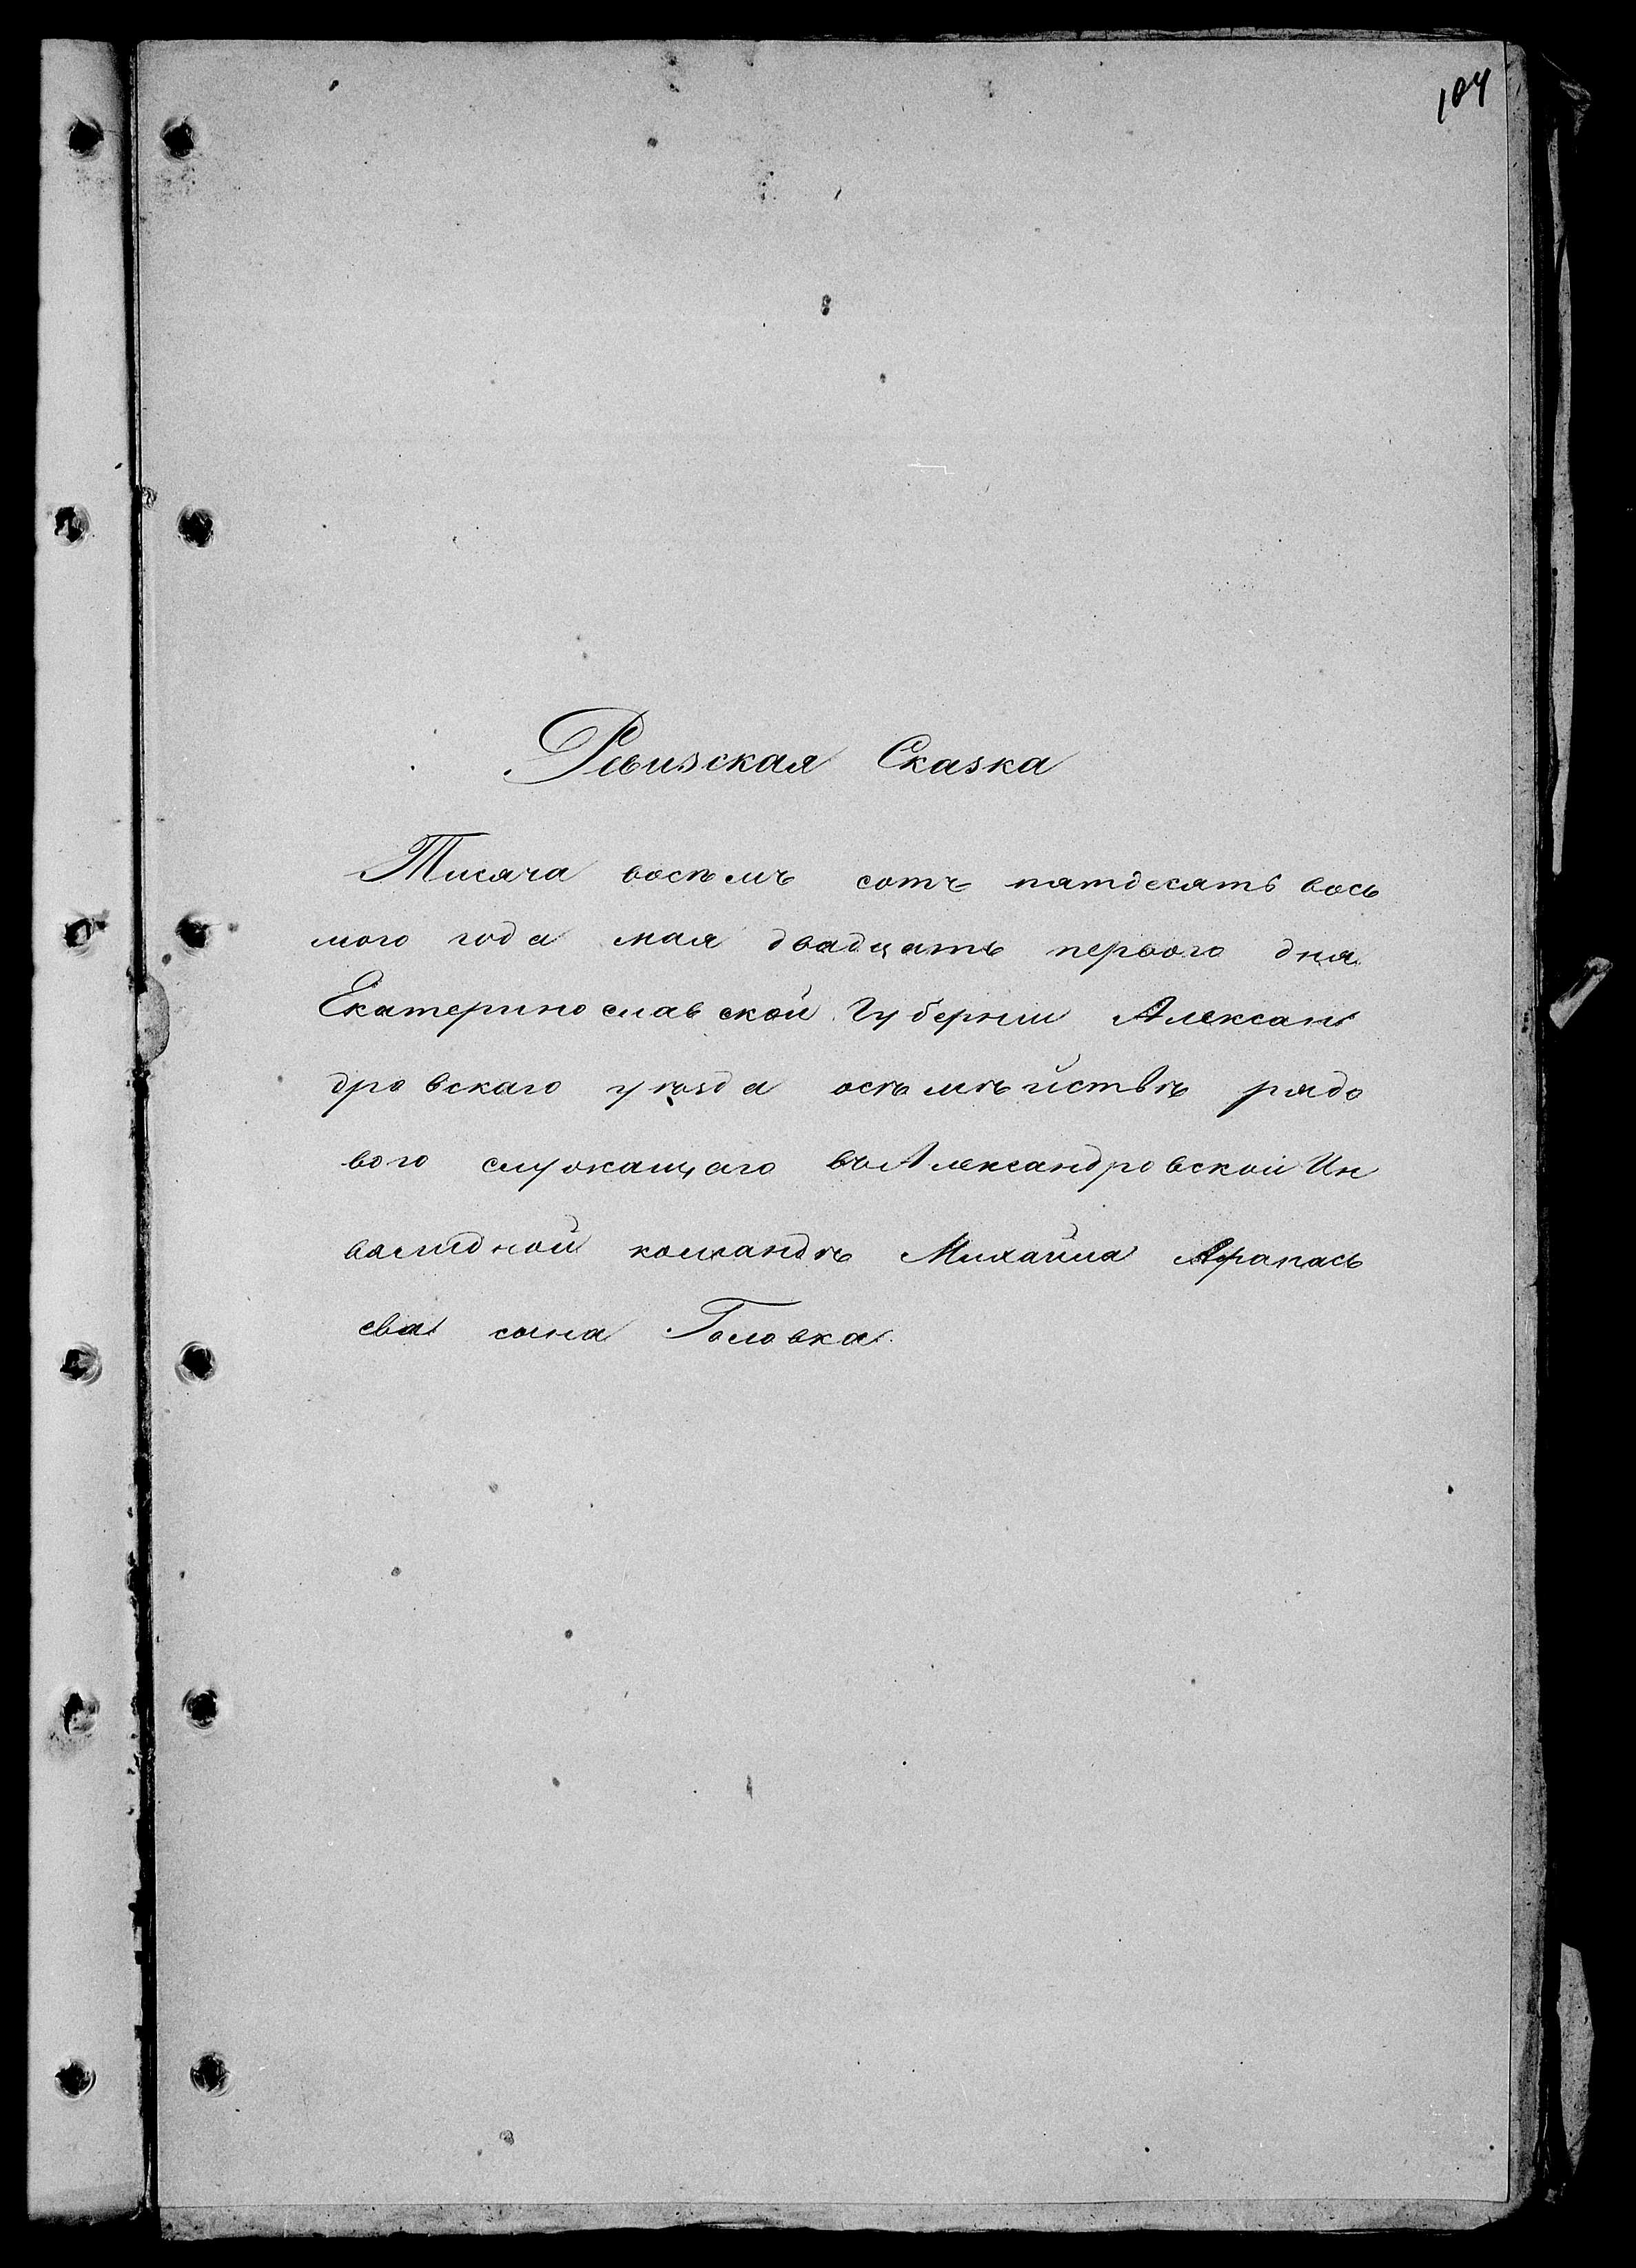 104
Ревизская Сказка
Тисяча восѣмъ сотъ пятдесятъ вось
мого года мая двадцать первого дня
Екатеринославской Губернии Алексан
дровскаго уѣзда осѣмѣйствѣ рядо
вого служащаго въ Александровской Ин
валидной командѣ Михайла Афанась
ева сына Головка